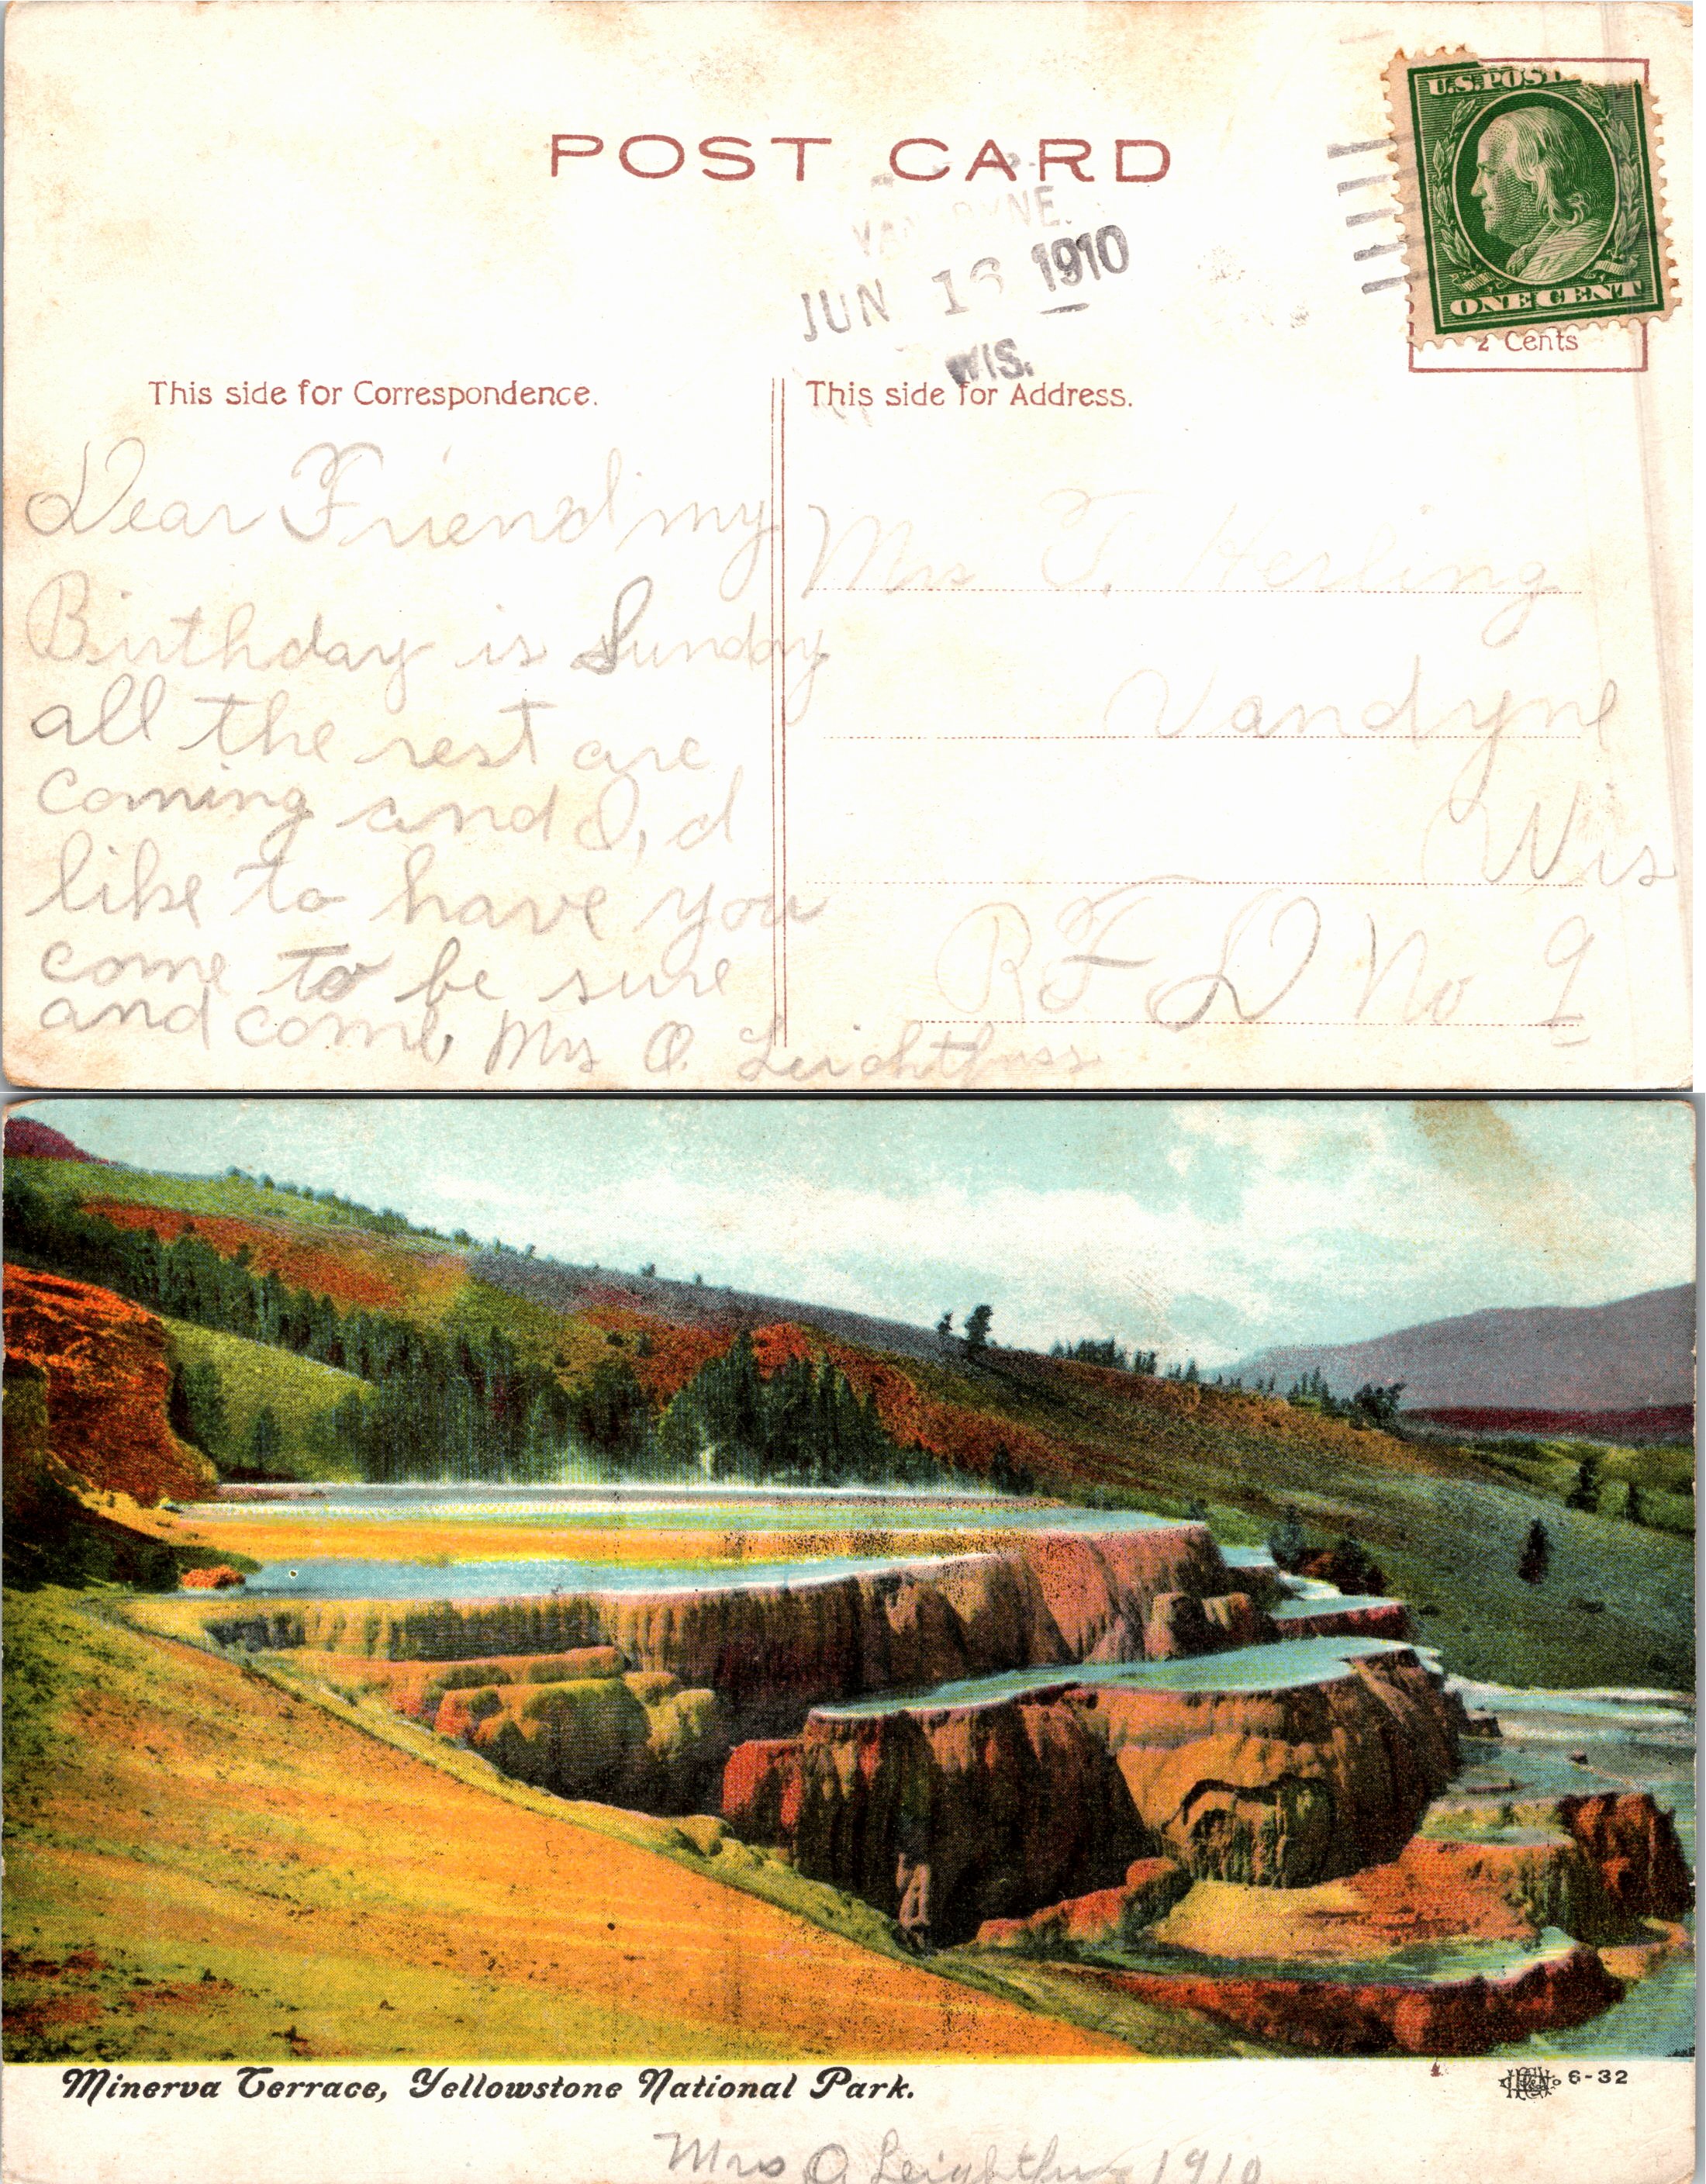 POST CARD
U.S. POST
ONE CENT
2 Cents
VAN DYNE.
JUN 1 1910
WIS.
This side for Correspondence.
This side for Address.
Dear Friend my
Birthday is Sunday
all the rest are
coming and I,d
like to have you
come to be sure
and come, Mrs O. Leichtfuss
Mrs T. Herling
Vandyne
Wis
R F D No 9
Minerva Terrace, Yellowstone National Park.
6-32
Mrs O Leightfuss 1910